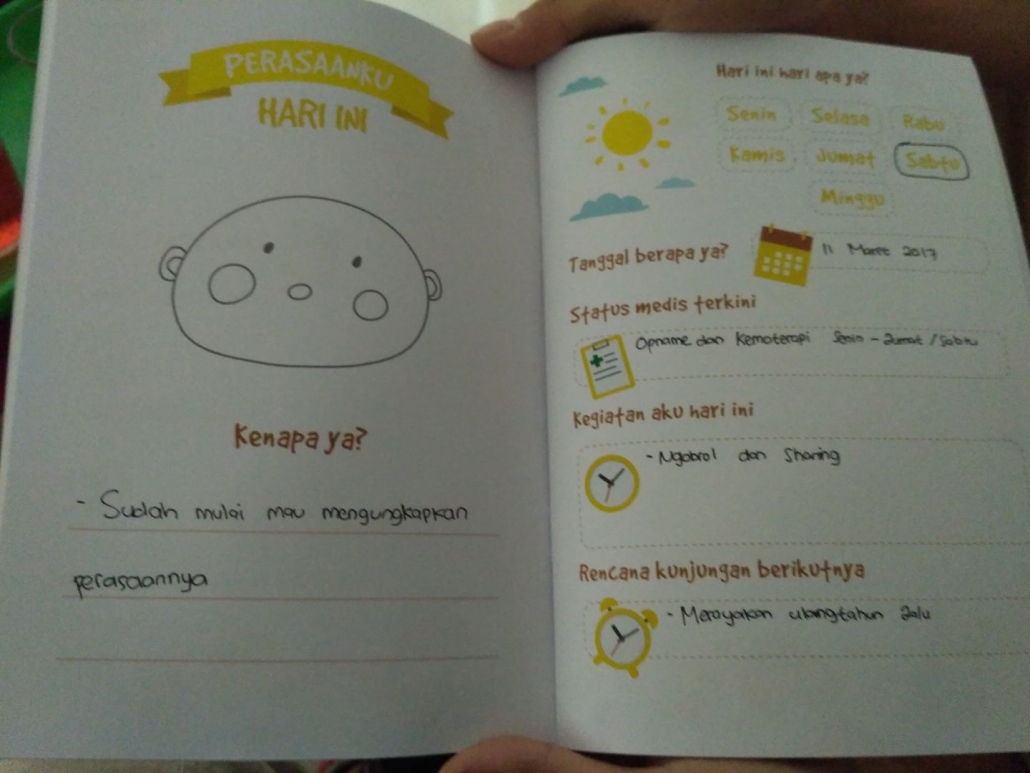 PERASAANKU
HARI INI
Kenapa ya?
- Sudah mulai mau mengungkapkan
perasaannya
Hari ini hari apa ya?
Senin Selasa Rabu
Kamis Jumat Sabtu
Minggu
Tanggal berapa ya? 11 Maret 2017
Status medis terkini
Opname dan Kemoterapi Senin - Jumat / Sabtu
Kegiatan aku hari ini
- Ngobrol dan Sharing
Rencana kunjungan berikutnya
- Merayakan ulangtahun Jalu